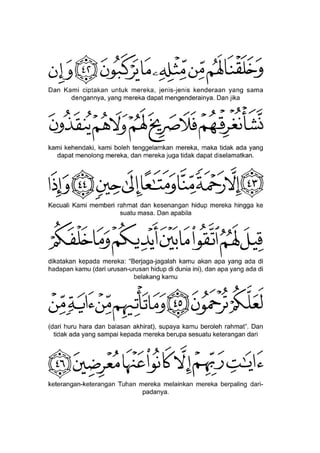 وَخَلَقْنَا لَهُم مِّن مِّثْلِهِۦ مَا يَرْكَبُونَ ﴿٤٢﴾ وَإِن
Dan Kami ciptakan untuk mereka, jenis-jenis kenderaan yang sama
dengannya, yang mereka dapat mengenderainya. Dan jika
نَّشَأْ نُغْرِقْهُمْ فَلَا صَرِيخَ لَهُمْ وَلَا هُمْ يُنقَذُونَ
kami kehendaki, kami boleh tenggelamkan mereka, maka tidak ada yang
dapat menolong mereka, dan mereka juga tidak dapat diselamatkan.
﴿٤٣﴾ إِلَّا رَحْمَةً مِّنَّا وَمَتَـٰعًا إِلَىٰ حِينٍ ﴿٤٤﴾ وَإِذَا
Kecuali Kami memberi rahmat dan kesenangan hidup mereka hingga ke
suatu masa. Dan apabila
قِيلَ لَهُمُ ٱتَّقُوا۟ مَا بَيْنَ أَيْدِيكُمْ وَمَا خَلْفَكُمْ
dikatakan kepada mereka: "Berjaga-jagalah kamu akan apa yang ada di
hadapan kamu (dari urusan-urusan hidup di dunia ini), dan apa yang ada di
belakang kamu
لَعَلَّكُمْ تُرْحَمُونَ ﴿٤٥﴾ وَمَا تَأْتِيهِم مِّنْ ءَايَةٍ مِّنْ
(dari huru hara dan balasan akhirat), supaya kamu beroleh rahmat". Dan
tidak ada yang sampai kepada mereka berupa sesuatu keterangan dari
ءَايَـٰتِ رَبِّهِمْ إِلَّا كَانُوا۟ عَنْهَا مُعْرِضِينَ ﴿٤٦﴾
keterangan-keterangan Tuhan mereka melainkan mereka berpaling dari-
padanya.